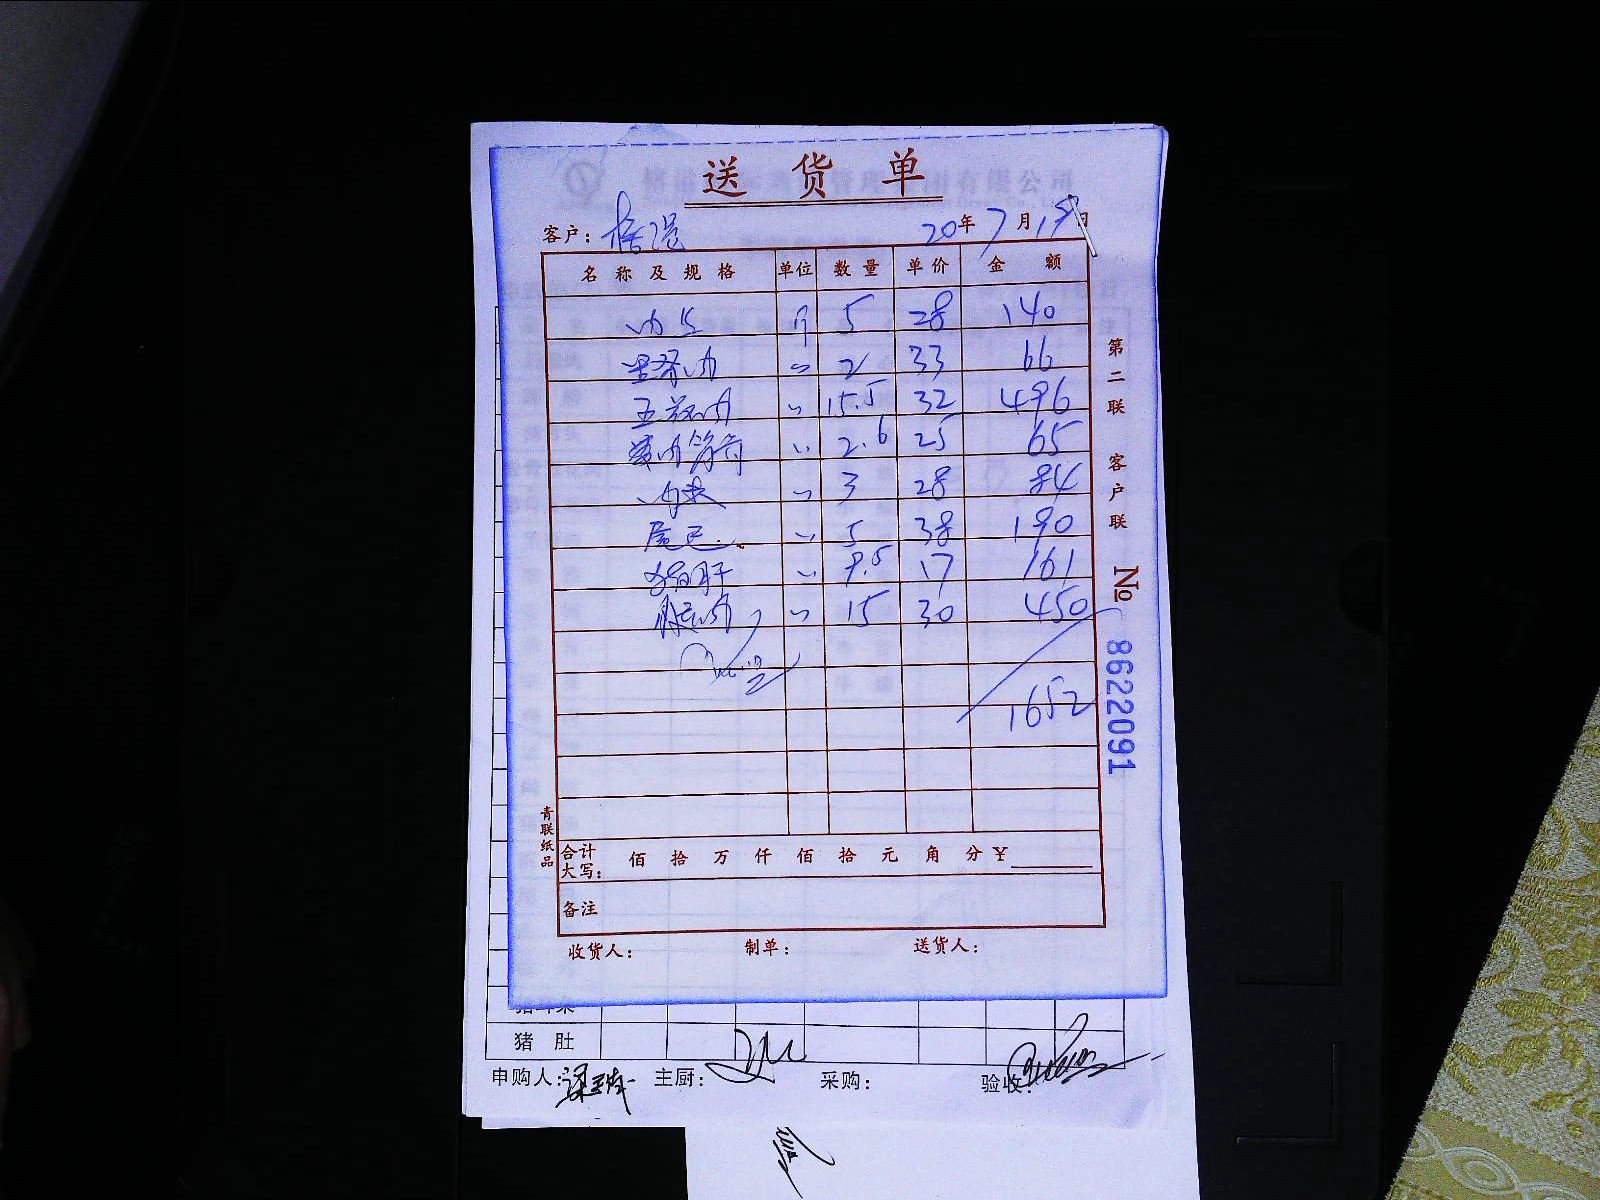 送货单
客户：
20年7月19日
名称及规格 单位 数量 单价 金额
斤 5 28 140
〃 2 33 66
五花肉 〃 15.5 32 496
〃 2.6 25 65
〃 3 28 84
尾巴 〃 5 38 190
猪肝 〃 9.5 17 161
腿肉 〃 15 30 450
1652
合计大写： 佰 拾 万 仟 佰 拾 元 角 分 ¥
备注
收货人： 制单： 送货人：
第二联 客户联
No 8622091
青联纸品
猪肚
申购人： 主厨： 采购： 验收：